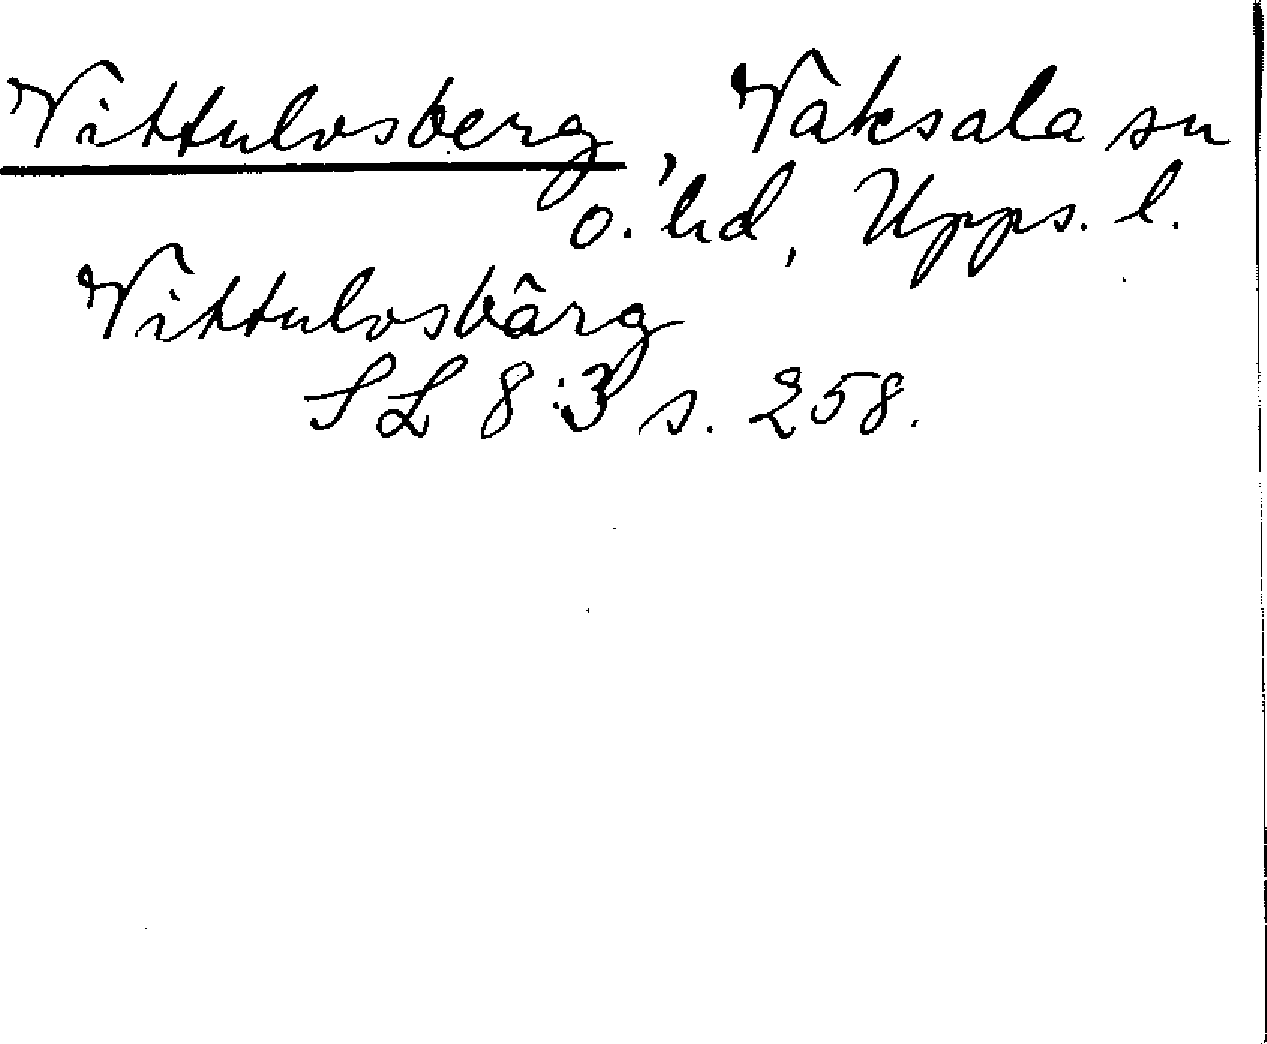 Vittulvsberg, Vaksala sn
o. hd, Upps. l.
Vittulvsbärg
SL 8:3 s. 258.